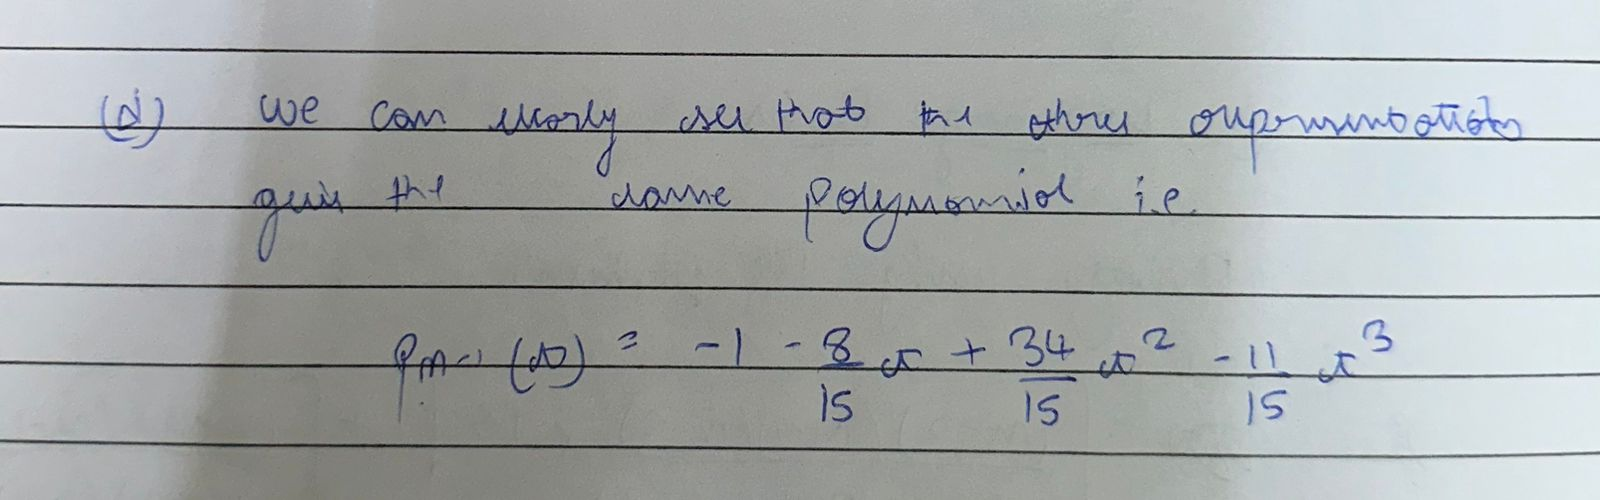 (d) We can clearly see that the three representations
give the same polynomial i.e.
Pn-1 (t) = -1 - 8/15 t + 34/15 t² - 11/15 t³